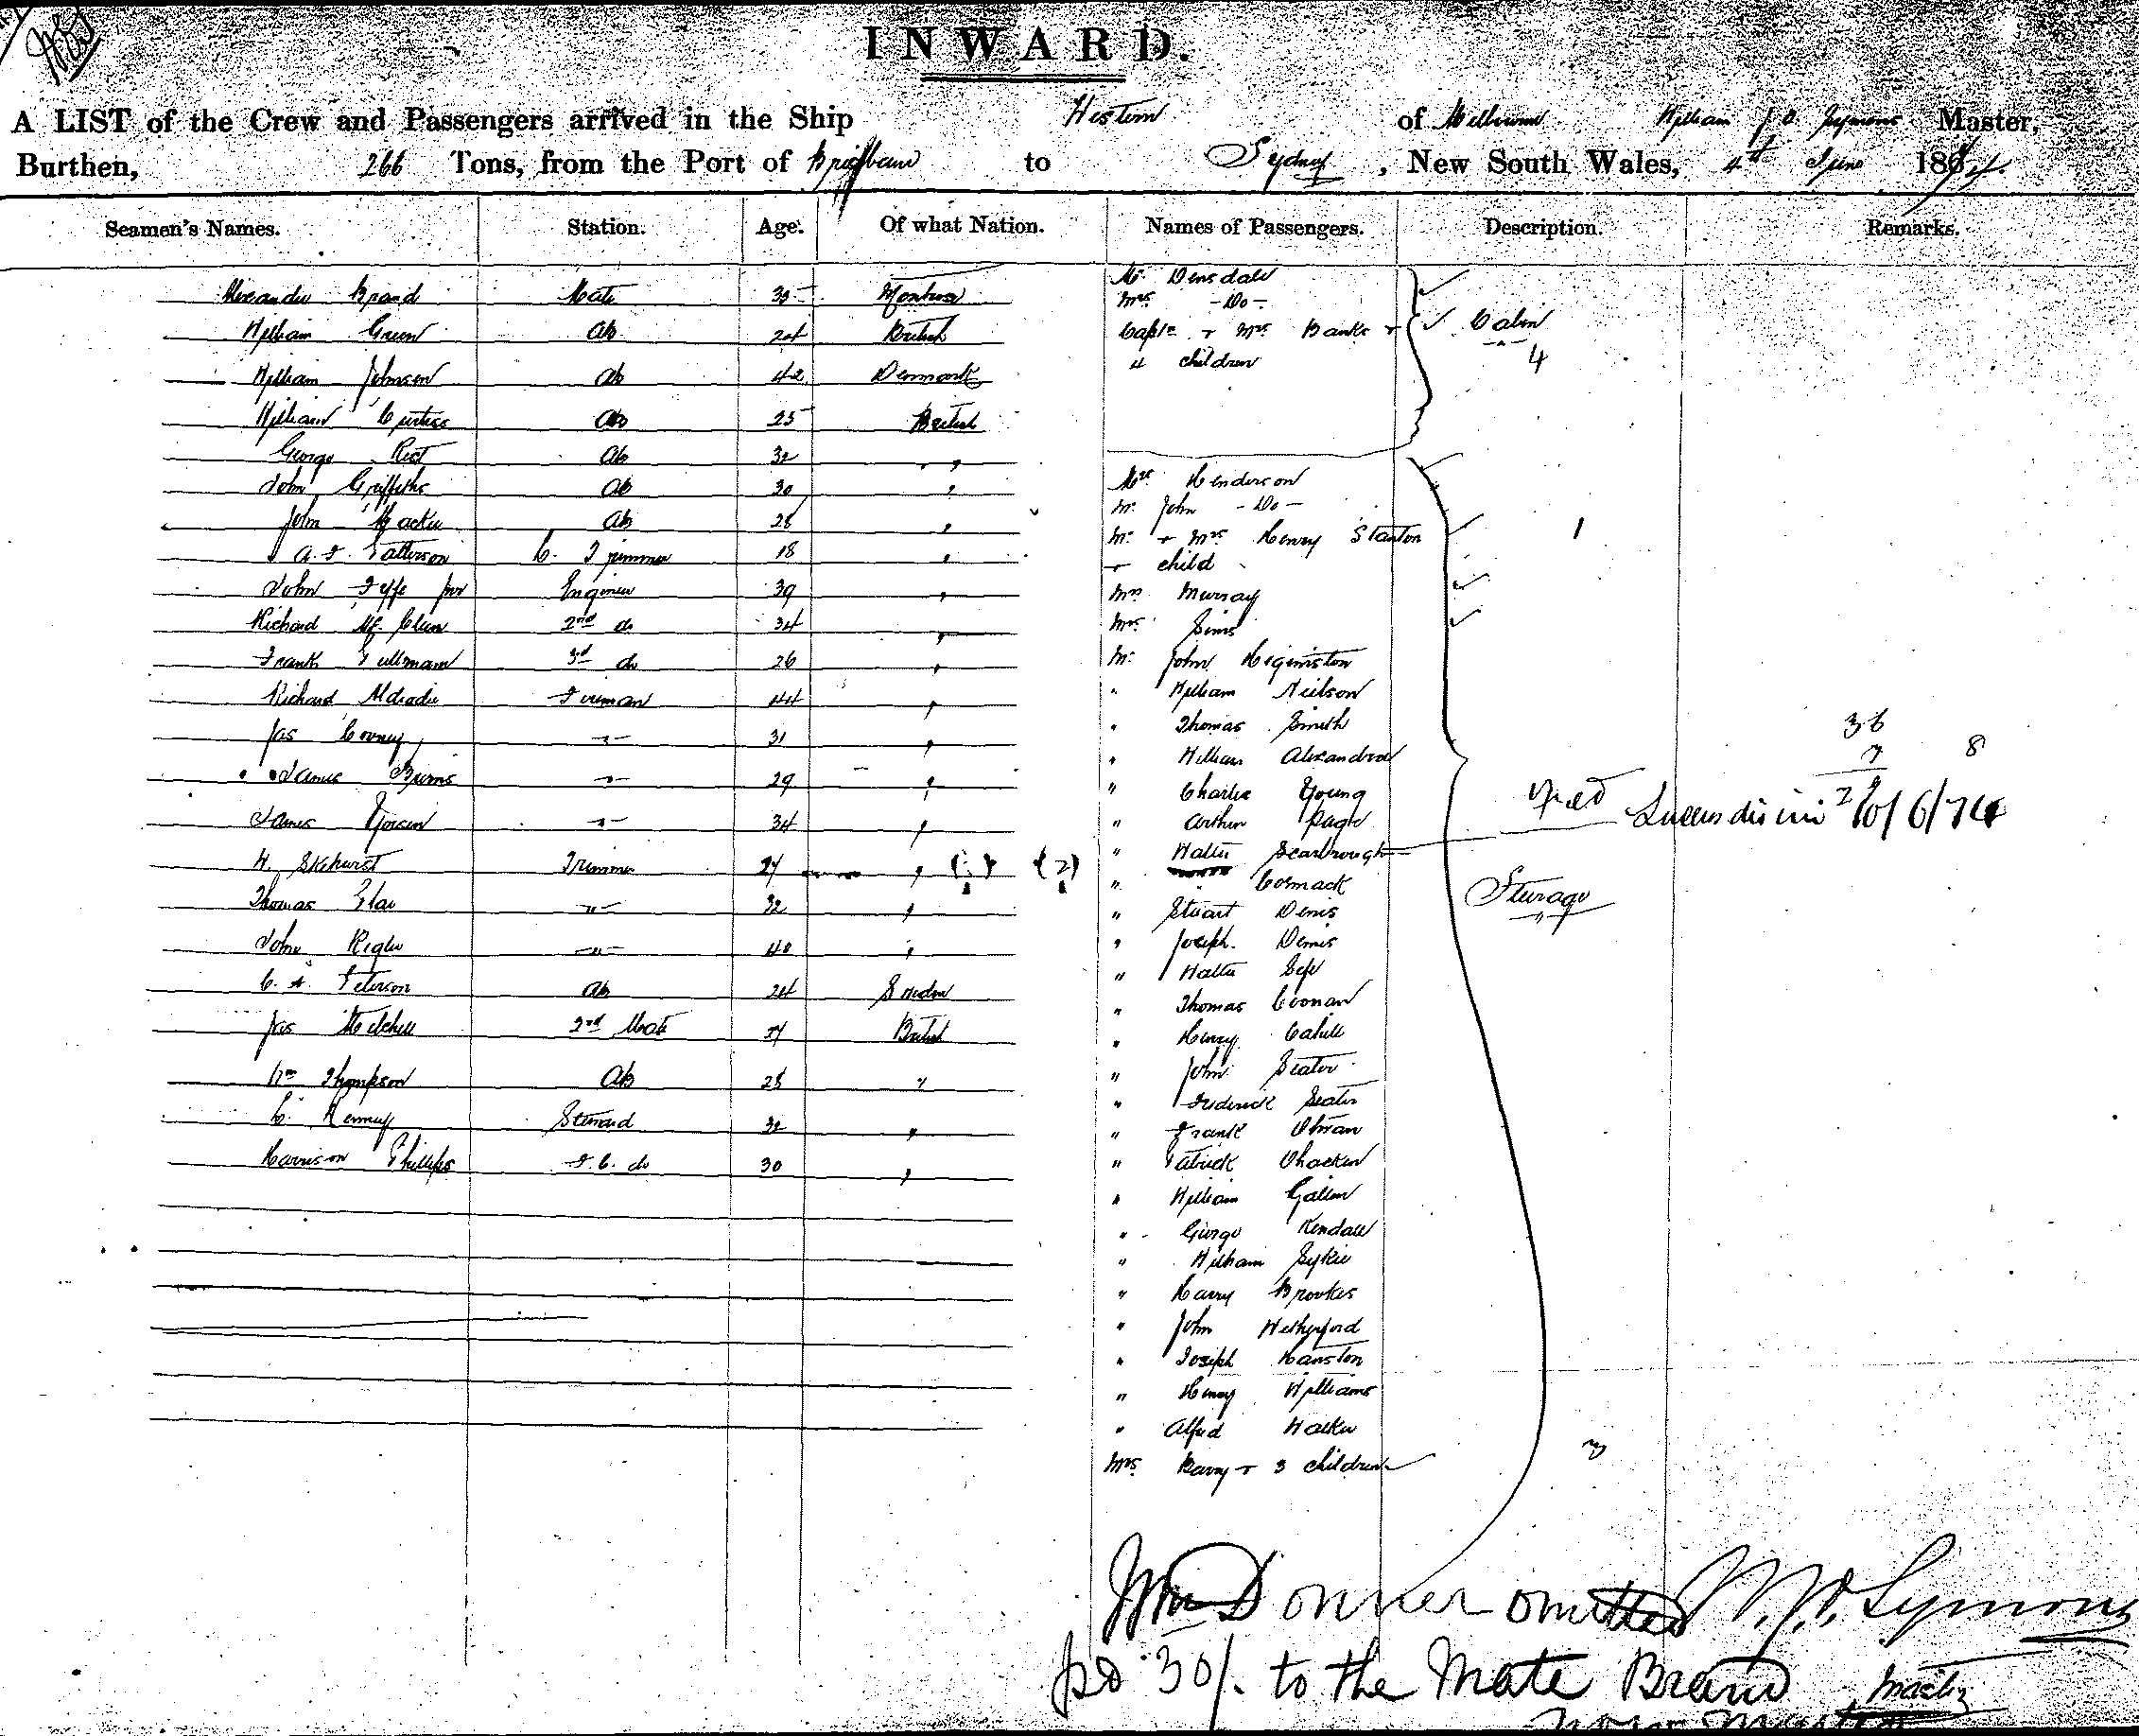 INWARD.
A LIST of the Crew and Passengers arrived in the Ship Western of Melbourne William J O Symons Master,
Burthen, 266 Tons, from the Port of Brisbane to Sydney, New South Wales, 4th June 1874.
Seamen's Names. Station. Age. Of what Nation. Names of Passengers. Description. Remarks.
Alexander Brand Mate 35 Montrose
William Green Ab 24 British
William Johnson Ab 42 Denmark
William Curtiss Ab 25 British
George Rist Ab 32 "
John Griffiths Ab 30 "
John Mackie Ab 28 "
A. F. Patterson C. Trimmer 18 "
John Fyffe jnr Engineer 39 "
Richard 2nd do 34 "
Frank Pullman 3rd do 26 "
Richard Fireman 44 "
Jas Cooney -"- 31 "
James Burns -"- 29 "
James -"- 34 "
H. Skehurst Trimmer 27 "
Thomas -"- 32 "
John -"- 40 "
C. A. Peterson Ab 24 Sweden
Jas Mitchell 2nd Mate 27 British
Wm Thompson Ab 28 "
C. Steward 32 "
Harrison Phillips F. C. do 30 "
Mr Densdale
Mrs -Do-
Captn + Mrs Banks +
4 children
Cabin
4
Mrs Henderson
Mr John -Do-
Mr + Mrs Henry Stanton
+ child
1
Mrs Murray
Mrs Sims
Mr John Higinston
" William Neilson
" Thomas Smith
" William Alexandra
" Charlie Young
" Arthur Page
" Walter Scarbrough
" Cormack
" Stuart Denis
" Joseph Denis
" Walter
" Thomas Coonan
" Henry Cahill
" John Seator
" Frederick Seator
" Frank
" Patrick
" William
" George Kendall
" William Sykie
" Harry Brookes
" John Wetherford
" Joseph Hanston
" Henry Williams
" Alfred Walker
Mrs Barry + 3 children
3
Steerage
36
7 8
29
10/6/74
Wm Donner omitted W. J. O. Symons
pd 30/. to the Mate Brand Master
now Master